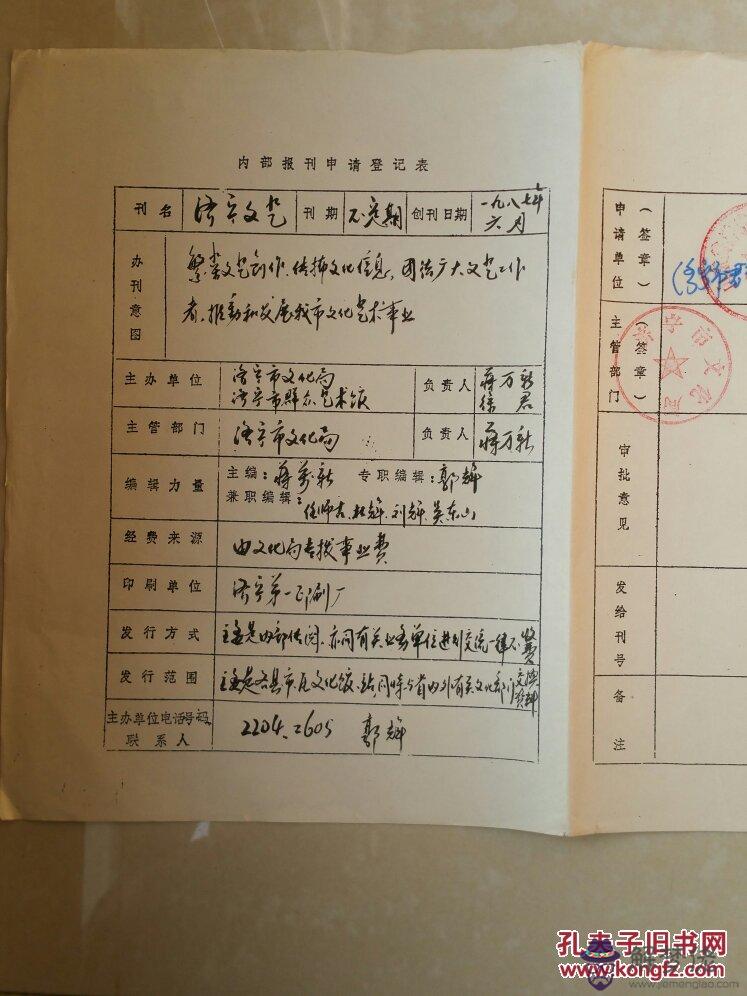 内部报刊申请登记表
刊名 济宁文艺 刊期 不定期 创刊日期 一九八七年六月
办刊意图
繁荣文艺创作、传播文化信息，团结广大文艺工作
者，推动和发展我市文化艺术事业
主办单位 济宁市文化局 负责人 蒋万新
济宁市群众艺术馆 徐君
主管部门 济宁市文化局 负责人 蒋万新
编辑力量 主编：蒋万新 专职编辑：郭辉
兼职编辑：
任师吉、杜辉、刘辉、吴东山
经费来源 由文化局专拨事业费
印刷单位 济宁第一印刷厂
发行方式 主要是内部传阅，亦同有关业务单位进行交流一律不收费
发行范围 主要是各县市、区文化馆、站同时与省内外有关文化部门交流
主办单位电话号码 2204、2605 郭辉
联系人
申请单位（签章）
主管部门（签章）
审批意见
发给刊号
备注
孔夫子旧书网
www.kongfz.com
解梦佬
www.jiemenglao.com